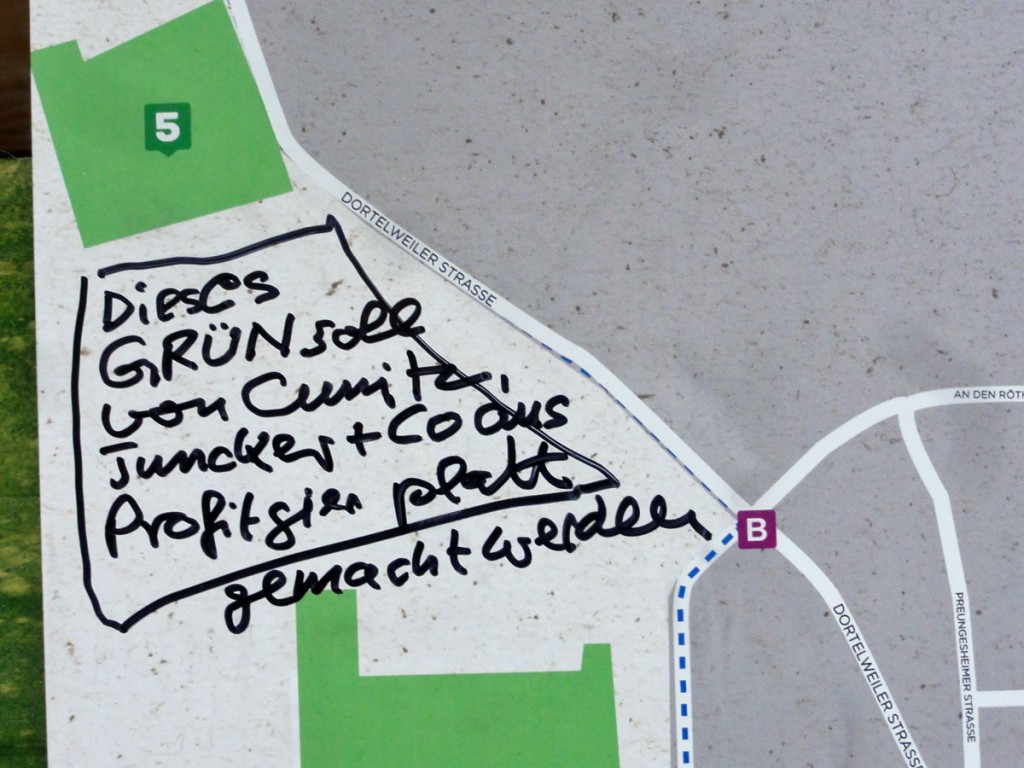 5
DORTELWEILER STRASSE
Dieses
GRÜN soll
von Cunitz,
Juncker + CO aus
Profitgier platt
gemacht werden
B
AN DEN RÖTH
DORTELWEILER STRASSE
PREUNGESHEIMER STRASSE